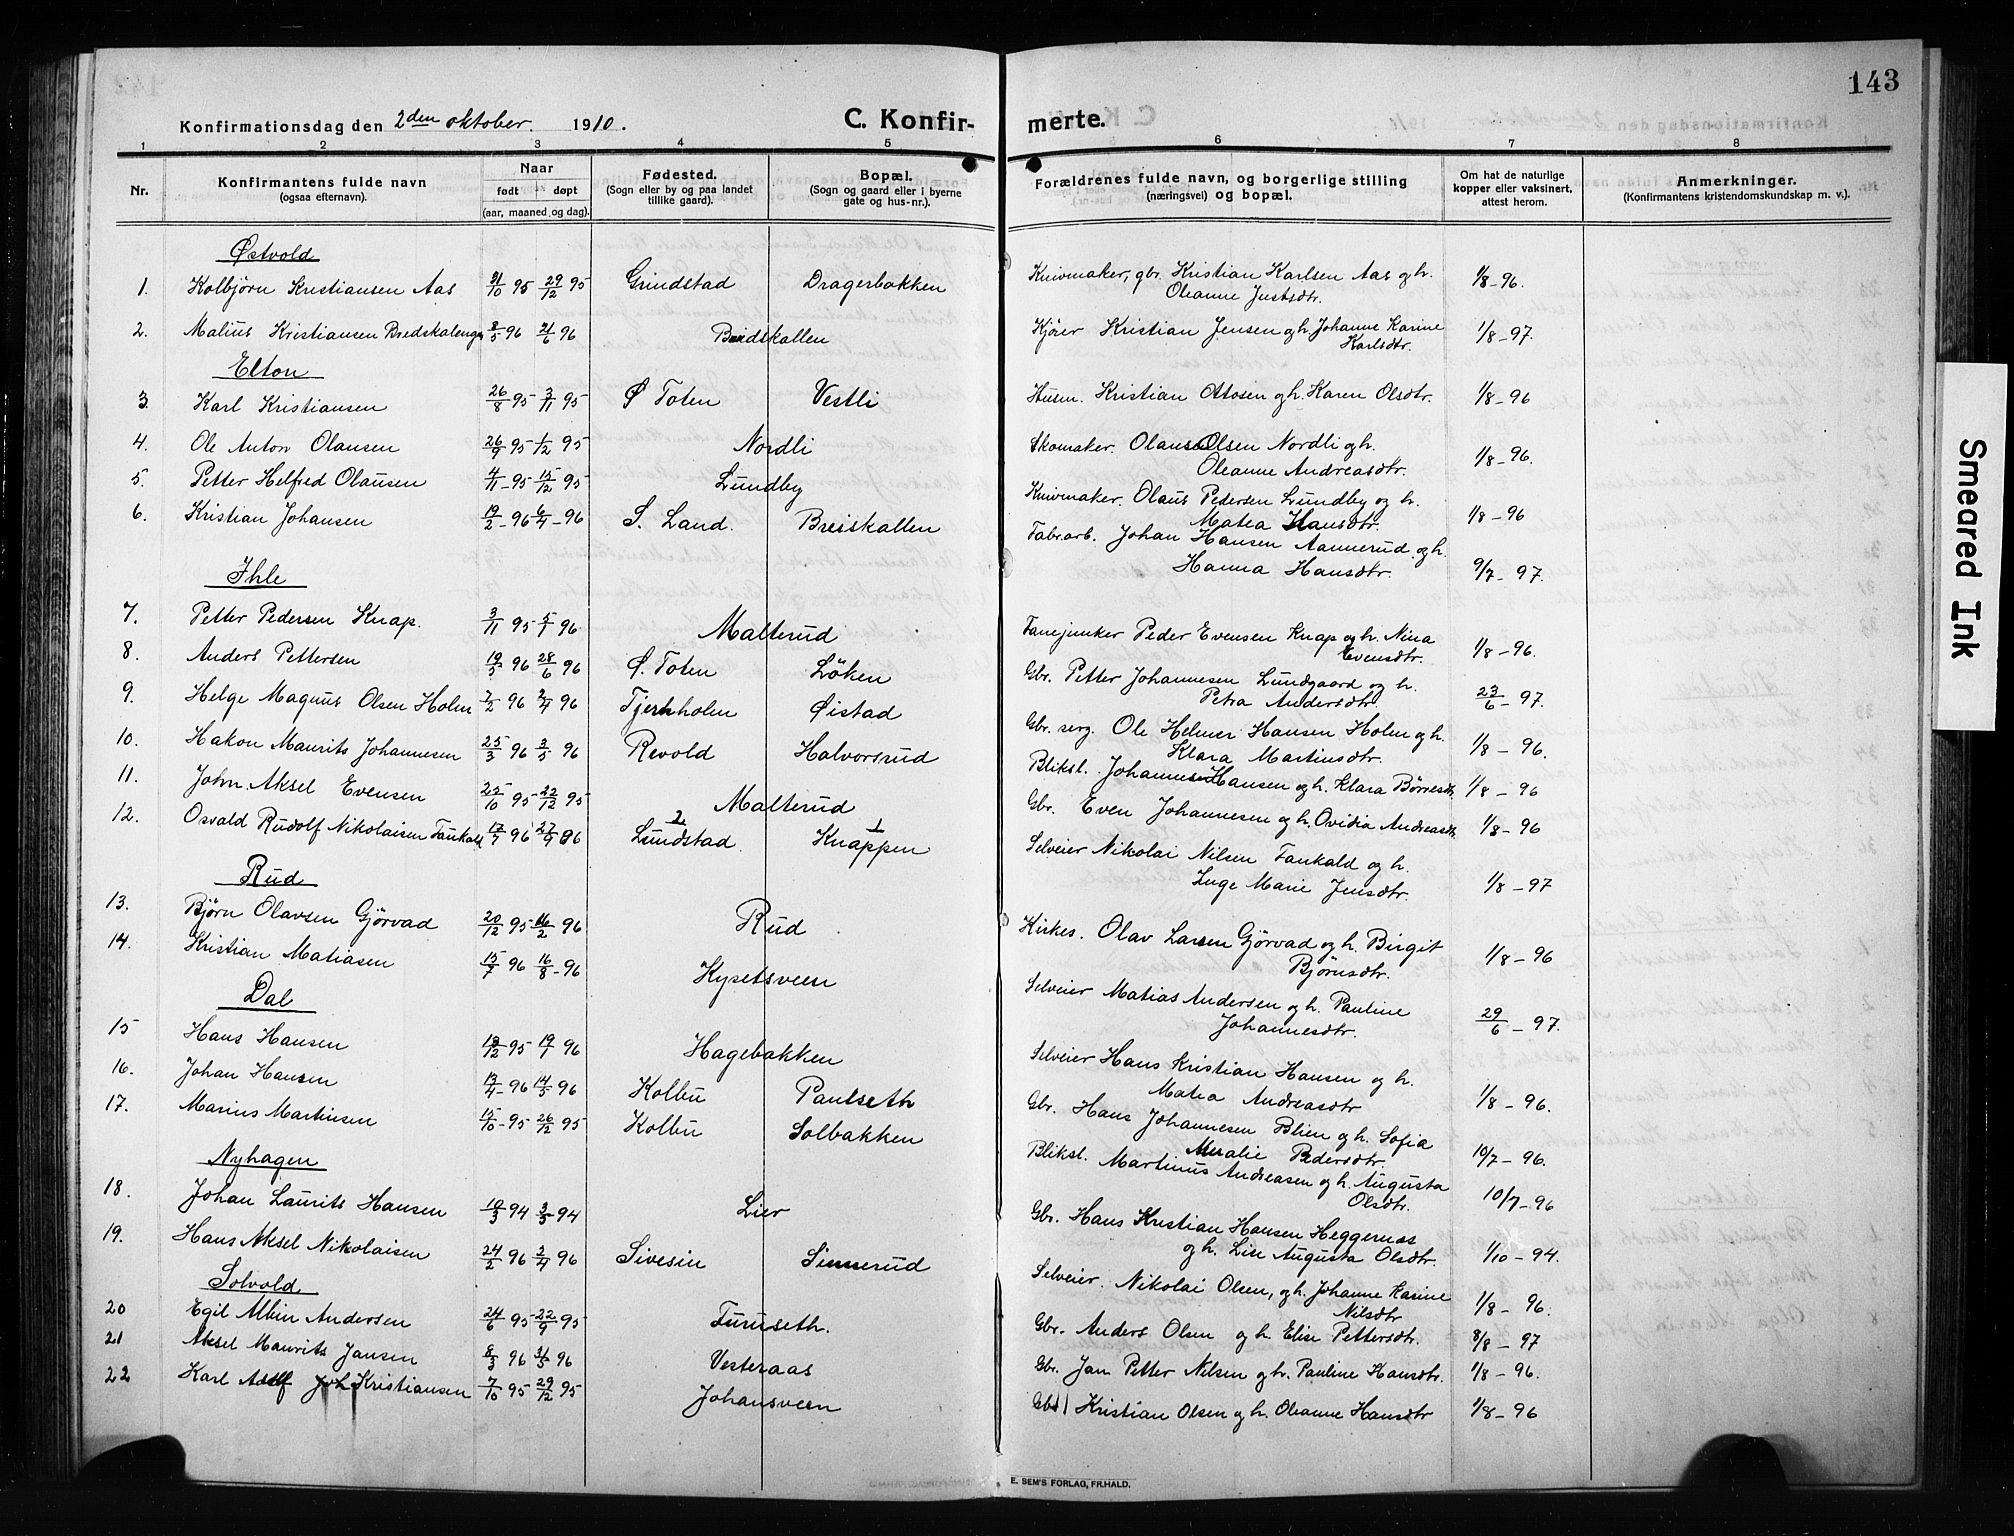 143
Konfirmationsdag den 2den oktober. 1910.
C. Konfirmerte.
1 2 3 4 5 6 7 8
Nr.
Konfirmantens fulde navn (ogsaa efternavn).
Naar født døpt (aar, maaned og dag).
Fødested. (Sogn eller by og paa landet tillike gaard).
Bopæl. (Sogn og gaard eller i byerne gate og hus-nr.).
Forældrenes fulde navn, og borgerlige stilling (næringsvei) og bopæl.
Om hat de naturlige kopper eller vaksinert, attest herom.
Anmerkninger. (Konfirmantens kristendomskundskap m. v.).
Østvold
1. Kolbjörn Kristiansen Aas 31/10 95 29/12 95 Grindstad Dragerbakken Knivmaker, gbr. Kristian Karlsen Aas og h. Oleanne Justsdtr. 1/8-96.
2. Malius Kristiansen Bredskalengn 8/5 96 21/6 96 Breidskallen Kjörer Kristian Jensen og h. Johanne Karine Karlsdtr. 1/8-97.
Elton
3. Karl Kristiansen 26/8 95 3/11 95 Ø Toten Vestli Husm. Kristian Ottosen og h. Karen Olsdtr. 1/8-96
4. Ole Anton Olausen 26/9 95 1/12 95 Nordli Skomaker. Olaus Olsen Nordli og h. Oleanne Andreasdtr. 1/8-96.
5. Petter Helfred Olausen 4/11-95 15/12 95 Lundby Knivmaker. Olaus Pedersen Lundby og h. Matea Hansdtr. 1/8-96
6. Kristian Johansen 19/2-96 6/4-96 S. Land. Breiskallen Fabr.arb. Johan Hansen Aannerud og h. Hanna Hansdtr. 9/7-97.
Ihle
7. Petter Pedersen Knap. 3/11 95 5/1 96 Malterud Fanejunker Peder Evensen Knap og h. Nina Evensdtr. 1/8-96.
8. Anders Pettersen 19/5 96 28/6 96 Ø. Toten Löken Gbr. Petter Johannesen Lundgaard og h. Petra Andersdtr. 23/6-97.
9. Helge Magnus Olsen Holm 7/2 96 2/4 96 Tjernholen Øistad Gbr. serg. Ole Helmer Hansen Holen og h. Klara Martinsdtr. 1/8-96.
10. Hakon Maurits Johannesen 25/3 96 3/5 96 Revold Halvorsrud Bliksl. Johannes Hansen og h. Klara Børresdtr. 1/8-96
11. John Aksel Evensen 25/10 95 22/12 95 Malterud Gbr. Even Johannesen og h. Ovidia Andreasdtr. 1/8-96
12. Osvald Rudolf Nikolaisen Faukald 17/7 96 27/9 96 2 Lundstad 1 Knappen Selveier Nikolai Nilsen Faukald og h. Inge Marie Jensdtr. 1/8-97
Rud
13. Björn Olavsen Gjörvad 20/12 95 16/2 96 Rud Kirkes. Olav Larsen Gjörvad og h. Birgit Björnsdtr. 1/8-96
14. Kristian Matiasen 15/7 96 16/8-96 Kysetsveen Selveier Matias Andersen og h. Pauline Johannesdtr. 29/6-97.
Dal
15 Hans Hansen 18/12 95 19/1 96 Hagebakken Selveier Hans Kristian Hansen og h. Matea Andreasdtr 1/8-96.
16. Johan Hansen 13/4-96 14/5 96 Kolbu Paulseth Gbr. Hans Johannesen Blien og h. Sofia Amalie Pedersdtr. 10/7-96.
17. Marius Martinsen 15/10-95 26/12 95 Kolbu Solbakken Bliksl. Martinus Andreasen og h. Augusta Olsdtr. 10/7-96
Nyhagen
18. Johan Laurits Hansen 19/3 94 3/5 94 Lier Gbr. Hans Kristian Hansen Heggernæs og h. Lise Augusta Olsdtr. 1/10-94.
19. Hans Aksel Nikolaisen 24/2 96 3/4 96 Sivesin Sinnerud Selveier. Nikolai Olsen, og h. Johanne Karine Nilsdtr 1/8-96.
Solvold
20 Egil Albin Andersen 24/6 95 22/9 95 Furuseth. Gbr. Anders Olsen og h. Elise Pettersdtr. 8/8-97
21 Aksel Maurits Jansen 8/3 96 31/5 96 Vesteraas Gbr. Jan Petter Nilsen og h. Pauline Hansdtr. 1/8-96.
22 Karl Adolf Joh Kristiansen 7/10 95 29/12 95 Johansveen Gbr. Kristian Olsen og h. Oleanne Hansdtr 1/8-96
E. SEM'S FORLAG, FR.HALD.
Smeared Ink